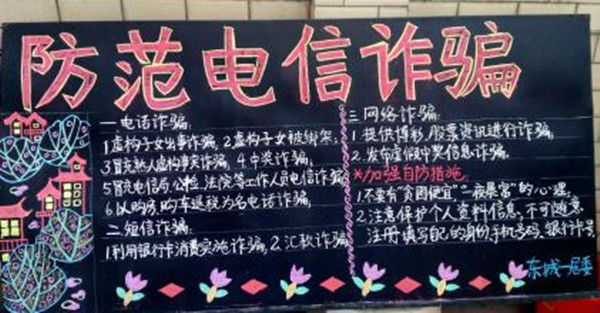 防范电信诈骗
一电话诈骗:
1虚构子女出事诈骗, 2虚构子女被绑架;
3冒充熟人虚构事实诈骗, 4中奖诈骗;
5冒充电信局,公检,法院等工作人员电信诈骗
6.以购房购车退税为名电话诈骗;
二短信诈骗:
1利用银行卡消费实施诈骗, 2汇款诈骗
三网络诈骗:
1.提供博彩,股票资讯进行诈骗,
2.发布虚假中奖信息诈骗,
*加强自防措施
1不要有“贪图便宜”“一夜暴富”的心理,
2.注意保护个人资料信息,不可随意
注册填写自己的身份,手机号码,银行卡号
东城一居委